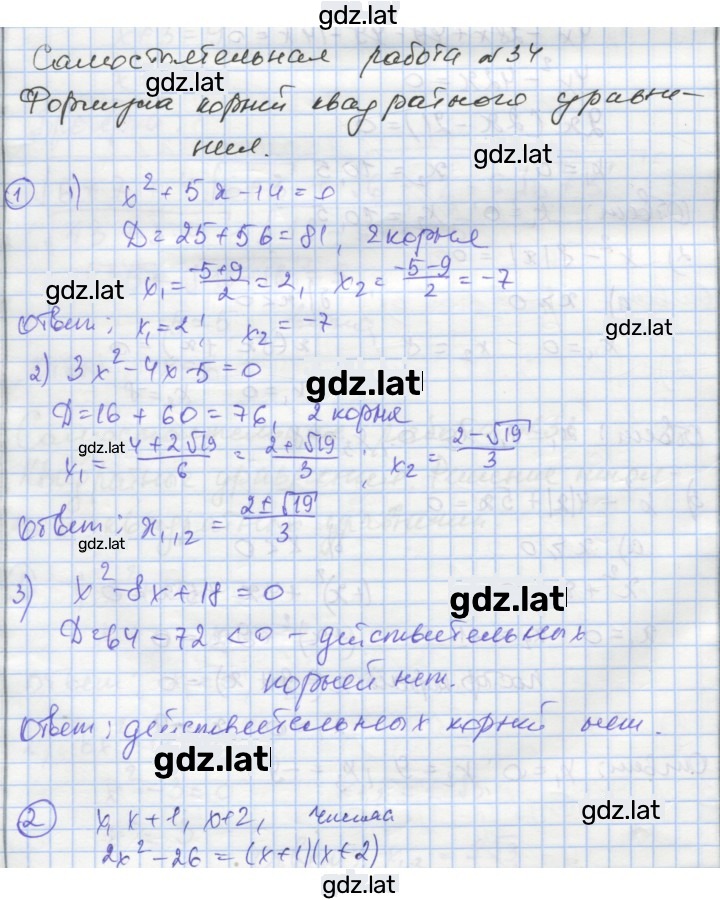 gdz.lat
Самостоятельная работа №34
gdz.lat
Формула корней квадратного уравне-
ния.
gdz.lat
① 1) x² + 5x - 14 = 0
D = 25 + 56 = 81, 2 корня
gdz.lat x₁ = (-5+9)/2 = 2, x₂ = (-5-9)/2 = -7
Ответ: x₁ = 2; x₂ = -7
gdz.lat
2) 3x² - 4x - 5 = 0
gdz.lat
D = 16 + 60 = 76, 2 корня
gdz.lat
x₁ = (4+2√19)/6 = (2+√19)/3; x₂ = (2-√19)/3
Ответ: x₁,₂ = (2±√19)/3
gdz.lat
3) x² - 8x + 18 = 0
gdz.lat
D = 64 - 72 < 0 - действительных
корней нет.
Ответ: действительных корней нет.
gdz.lat
② x, x+1, x+2, числа
gdz.lat
2x² - 26 = (x+1)(x+2)
gdz.lat